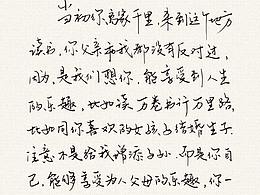 当初你离家千里，来到这个地方
读书，你父亲和我都没有反对过，
因为，是我们想你，能享受到人生
的乐趣，比如读万卷书行万里路，
比如同你喜欢的女孩子结婚生子。
注意不是给我绵添子孙，而是你自
己，能够享受为人父母的乐趣，你一